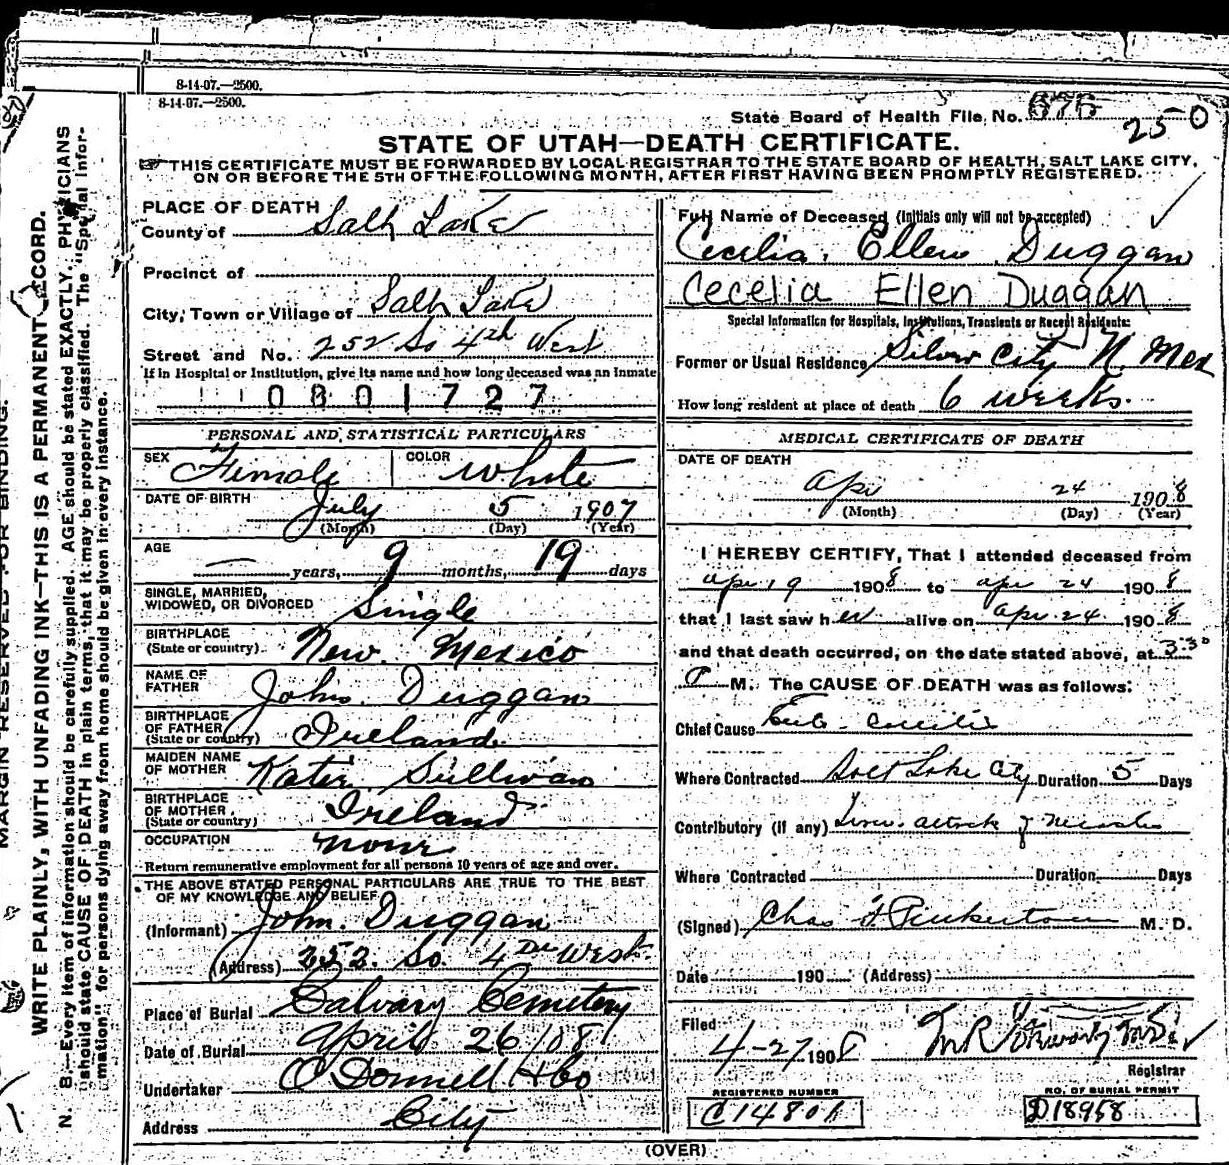 8-14-07.—2500.
8-14-07.—2500.
State Board of Health File, No. 676
25-0
STATE OF UTAH—DEATH CERTIFICATE.
THIS CERTIFICATE MUST BE FORWARDED BY LOCAL REGISTRAR TO THE STATE BOARD OF HEALTH, SALT LAKE CITY,
ON OR BEFORE THE 5TH OF THE FOLLOWING MONTH, AFTER FIRST HAVING BEEN PROMPTLY REGISTERED.
MARGIN RESERVED FOR BINDING.
WRITE PLAINLY, WITH UNFADING INK—THIS IS A PERMANENT RECORD.
N. B.—Every item of information should be carefully supplied. AGE should be stated EXACTLY. PHYSICIANS
should state CAUSE OF DEATH in plain terms, that it may be properly classified. The "Special Infor-
mation" for persons dying away from home should be given in every instance.
PLACE OF DEATH
County of Salt Lake
Precinct of
City, Town or Village of Salt Lake
Street and No. 252 So 4th West
If in Hospital or Institution, give its name and how long deceased was an Inmate
0801727
PERSONAL AND STATISTICAL PARTICULARS
SEX Female COLOR White
DATE OF BIRTH July 5 1907
(Month) (Day) (Year)
AGE — years, 9 months, 19 days
SINGLE, MARRIED,
WIDOWED, OR DIVORCED Single
BIRTHPLACE
(State or country) New Mexico
NAME OF
FATHER John Duggan
BIRTHPLACE
OF FATHER
(State or country) Ireland
MAIDEN NAME
OF MOTHER Katie Sullivan
BIRTHPLACE
OF MOTHER
(State or country) Ireland
OCCUPATION none
Return remunerative employment for all persons 10 years of age and over.
THE ABOVE STATED PERSONAL PARTICULARS ARE TRUE TO THE BEST
OF MY KNOWLEDGE AND BELIEF
(Informant) John Duggan
(Address) 252. So. 4th West.
Place of Burial Calvary Cemetery
Date of Burial April 26/08
Undertaker O'Donnell & Co
Address City
Full Name of Deceased (Initials only will not be accepted)
Cecelia Ellen Duggan
Cecelia Ellen Duggan
Special Information for Hospitals, Institutions, Transients or Recent Residents:
Former or Usual Residence Silver City N. Mex
How long resident at place of death 6 weeks.
MEDICAL CERTIFICATE OF DEATH
DATE OF DEATH
Apr 24 1908
(Month) (Day) (Year)
I HEREBY CERTIFY, That I attended deceased from
Apr 19 1908 to Apr 24 1908
that I last saw her alive on Apr 24 1908
and that death occurred, on the date stated above, at 3:30
P M. The CAUSE OF DEATH was as follows:
Chief Cause
Where Contracted Salt Lake City Duration 5 Days
Contributory (if any) attack of Measles
Where Contracted Duration Days
(Signed) Chas F. Pinkerton M. D.
Date 190 (Address)
Filed 4-27 1908
Registrar
REGISTERED NUMBER NO. OF BURIAL PERMIT
C14801 D18958
(OVER)